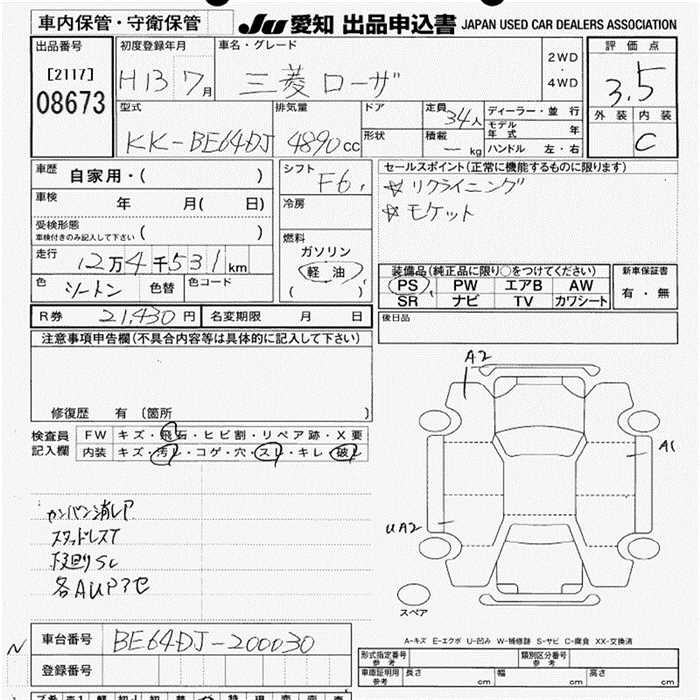 車内保管・守衛保管 JU 愛知 出品申込書 JAPAN USED CAR DEALERS ASSOCIATION
出品番号 初度登録年月 車名・グレード 評価点
[2117] H13 7月 三菱 ローザ 2WD・4WD 3.5
08673 外装 内装
型式 排気量 ドア 定員 34人 ディーラー・並行 C
KK-BE64DJ 4890cc モデル年式 年
形状 積載 ― kg ハンドル 左・右
車歴 自家用・( ) シフト F6 セールスポイント(正常に機能するものに限ります)
☆リクライニング
車検 年 月( 日) 冷房 ☆モケット
受検形態
車検付きのみ記入して下さい ( )
燃料
走行 12万4千531km ガソリン
装備品(純正品に限り○をつけてください) 新車保証書
色 ツートン 色替 色コード 軽油 PS PW エアB AW 有・無
( ) SR ナビ TV カワシート
R券 21,430円 名変期限 月 日 後日品
注意事項申告欄(不具合内容等は具体的に記入して下さい)
A2
修復歴 有 〔箇所 〕
検査員 FW キズ・飛石・ヒビ割・リペア跡・X要
記入欄 内装 キズ・汚レ・コゲ・穴・スレ・キレ・破レ
A1
カンバン消しア
スタッドレスT
UA2
下廻りSC
各AUPアセ
スペア
A-キズ E-エクボ U-凹み W-補修跡 S-サビ C-腐食 XX-交換済
N 車台番号 BE64DJ-200030
型式指定番号 参考 類別区分番号 参考
登録番号 車庫証明用 参考 長さ cm 幅 cm 高さ cm